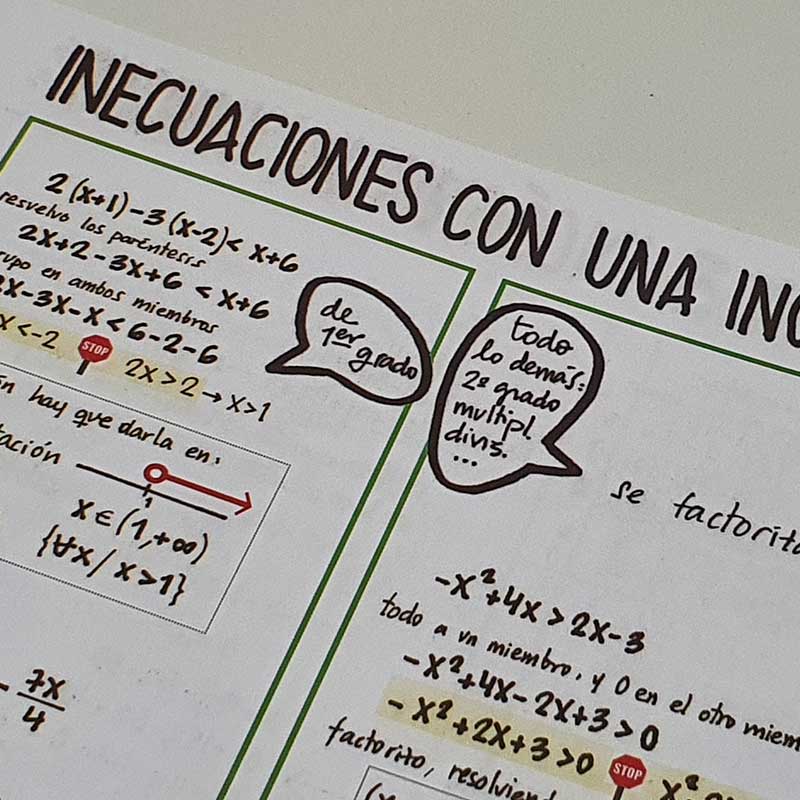 INECUACIONES CON UNA
2(x+1)-3(x-2)< x+6
resuelvo los paréntesis
2x+2-3x+6 < x+6
en ambos miembros
2x-3x-x<6-2-6
x<-2 STOP 2x>2→x>1
hay que darla en:
1
x∈(1,+∞)
{∀x/x>1}
- 7x/4
de
1er
grado
todo
lo demás:
2º grado
multipl.
divis.
...
se
-x²+4x>2x-3
todo a un miembro, y 0 en el otro
-x²+4x-2x+3>0
-x²+2x+3>0 STOP
factorizo,